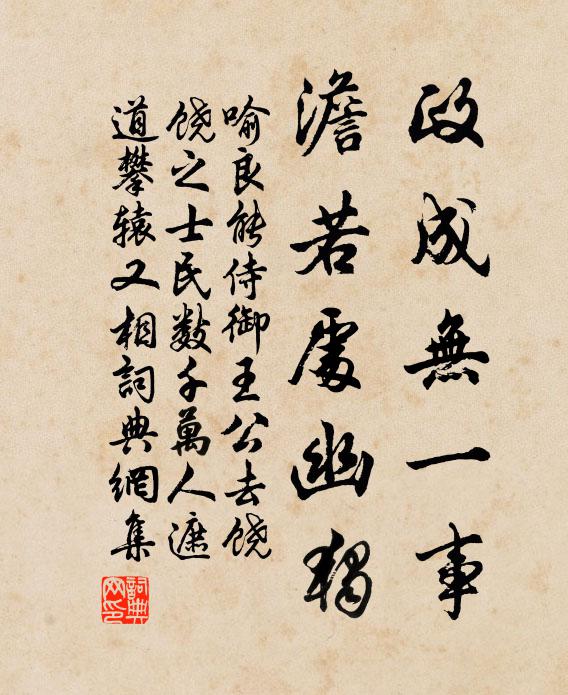 政成無一事
澹若處幽獨
喻良能侍御王公去饶
饶之士民數千萬人遮
道攀辕又相詞典網集
詞典网印